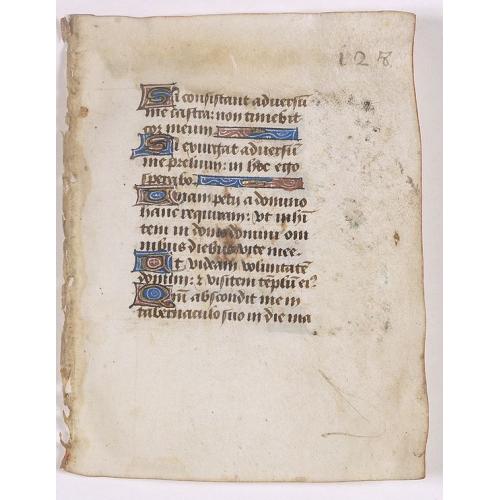 128
Si consistant adversū
me castra: non timebit
cor meum
Si exurgat adversū
me prelium: in hoc ego
sperabo
Unam petii a domino
hanc requiram: ut inhī
tem in domo domini om
nibus diebus vite mee.
Ut videam voluntatē
domini: & visitem tēplū eiꝰ
Qm̄ abscondit me in
tabernaculo suo in die ma